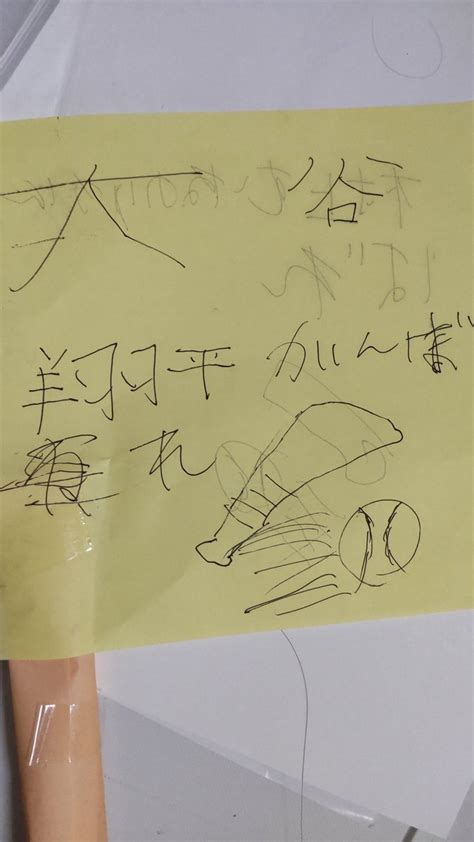 大谷
翔平 がんば
れ